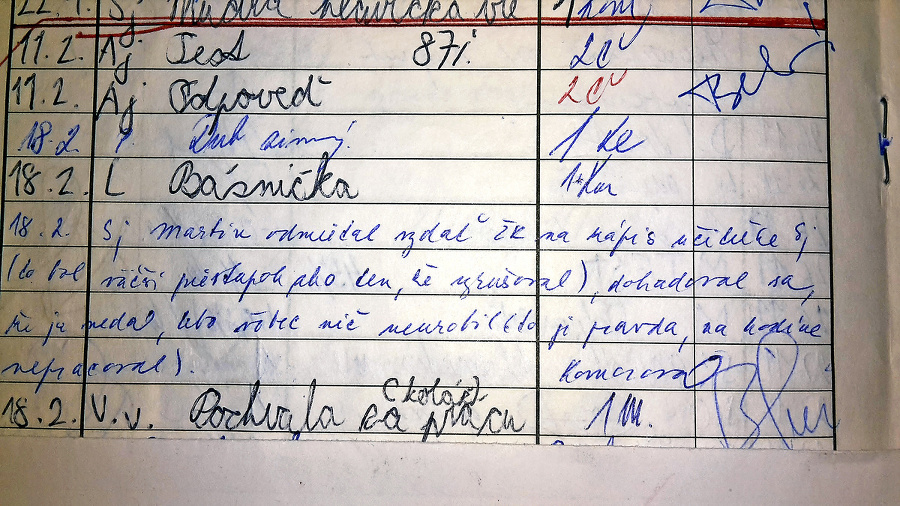 22.1. Sj
11.2. Aj Test 87%. 2Cv
17.2. Aj Odpoveď 2Cv
18.2. Dub zimný 1 Ke
18.2. L Básnička 1 Kom
18.2. Sj Martin odmietal vzdať ŽK na nápis učiteľke Sj
(to bol väčší priestupok ako ten, že vyrušoval), dohadoval sa,
že ju nedal, lebo vôbec nič neurobil (to je pravda, na hodine
nepracoval). Komorova
18.2. V.v. Pochvala za prácu (koláž) 1 M.